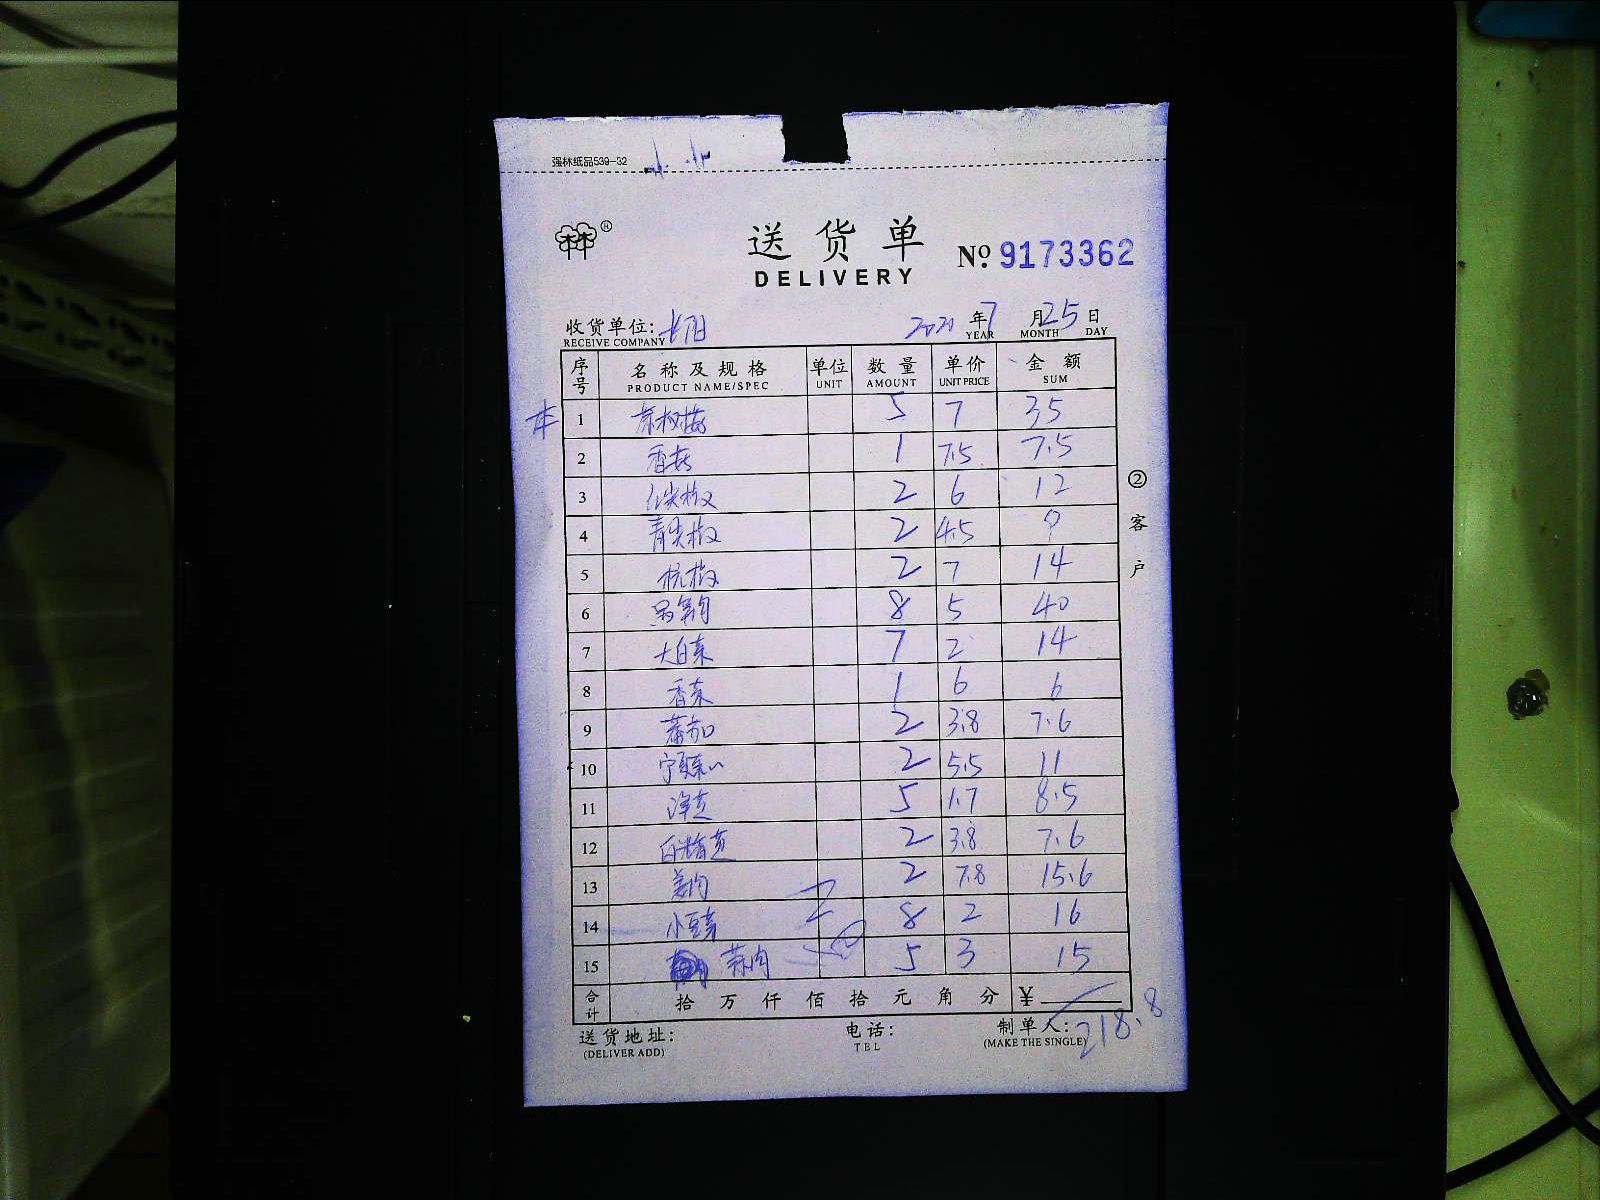 强林纸品539-32
林林®
送货单
DELIVERY
№ 9173362
收货单位: 2020 年 7 月 25 日
RECEIVE COMPANY YEAR MONTH DAY
序号 名称及规格 单位 数量 单价 金额
PRODUCT NAME/SPEC UNIT AMOUNT UNIT PRICE SUM
1 5 7 35
2 香菇 1 7.5 7.5
3 2 6 12
4 青尖椒 2 4.5 9
5 杭椒 2 7 14
6 8 5 40
7 大白菜 7 2 14
8 香菜 1 6 6
9 蕃茄 2 3.8 7.6
10 2 5.5 11
11 5 1.7 8.5
12 2 3.8 7.6
13 姜肉 2 7.8 15.6
14 小豆芽 8 2 16
15 蒜肉 5 3 15
合计 拾 万 仟 佰 拾 元 角 分 ¥ 218.8
送货地址: 电话: 制单人:
(DELIVER ADD) TEL (MAKE THE SINGLE)
②客户